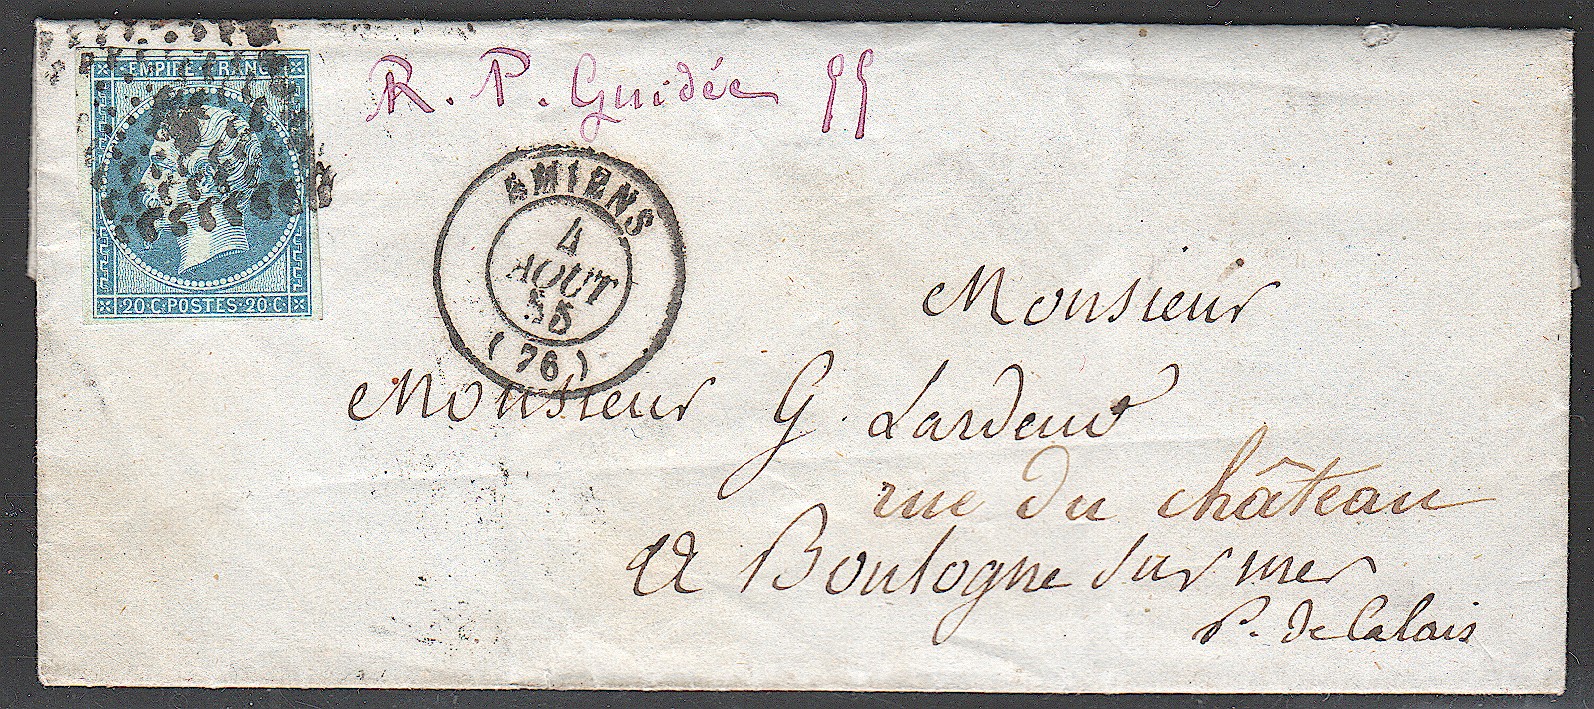 EMPIRE FRANC
20 C. POSTES 20 C.
R. P. Guidée 55
AMIENS
4
AOUT
55
(76)
Monsieur
Monsieur G. Lardeur
rue du château
à Boulogne sur mer
P. de Calais